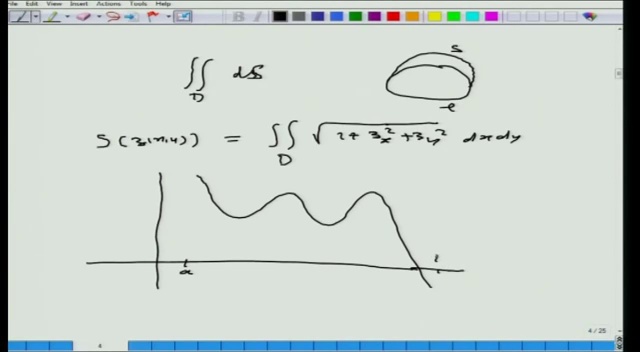 File Edit View Insert Actions Tools Help
∬ ds
D
S
S(z(x,y)) = ∬ √(1+z_x²+z_y²) dxdy
D
a
4 / 25
4